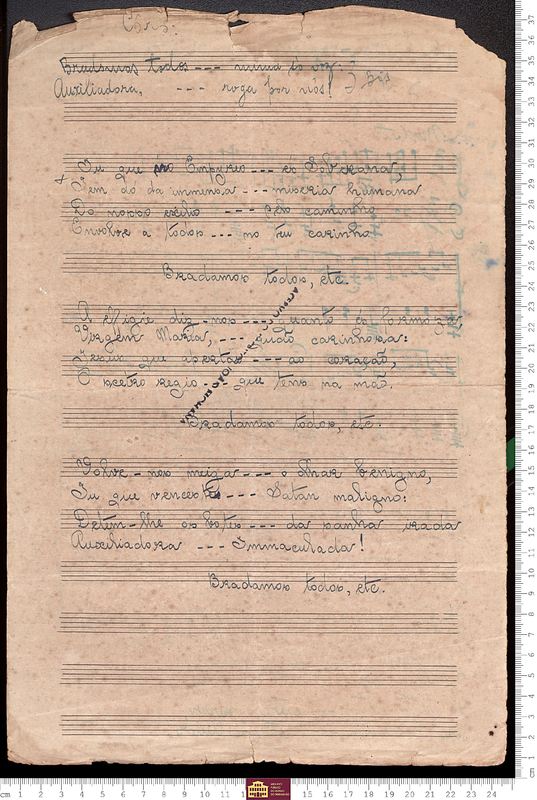 Côro:
Bradamos todos --- numa só voz:
Auxiliadora, --- roga por nós! } Bis
Tu que no Empyreo --- és Soberana,
Tem dó da immensa --- miseria humana
Do nosso exilio --- pelo caminho
Envolve a todos --- no teu carinho.
Bradamos todos, etc.
A effigie diz-nos --- quanto és formoza
Virgem Maria, --- quão carinhosa:
Jesus que apertas --- ao coração,
O scetro regio --- que tens na mão.
Bradamos todos, etc.
Volve-nos meiga --- o olhar benigno,
Tu que venceste --- Satan maligno:
Detem-lhe os botes --- da sanha irada
Auxiliadora --- Immaculada!
Bradamos todos, etc.